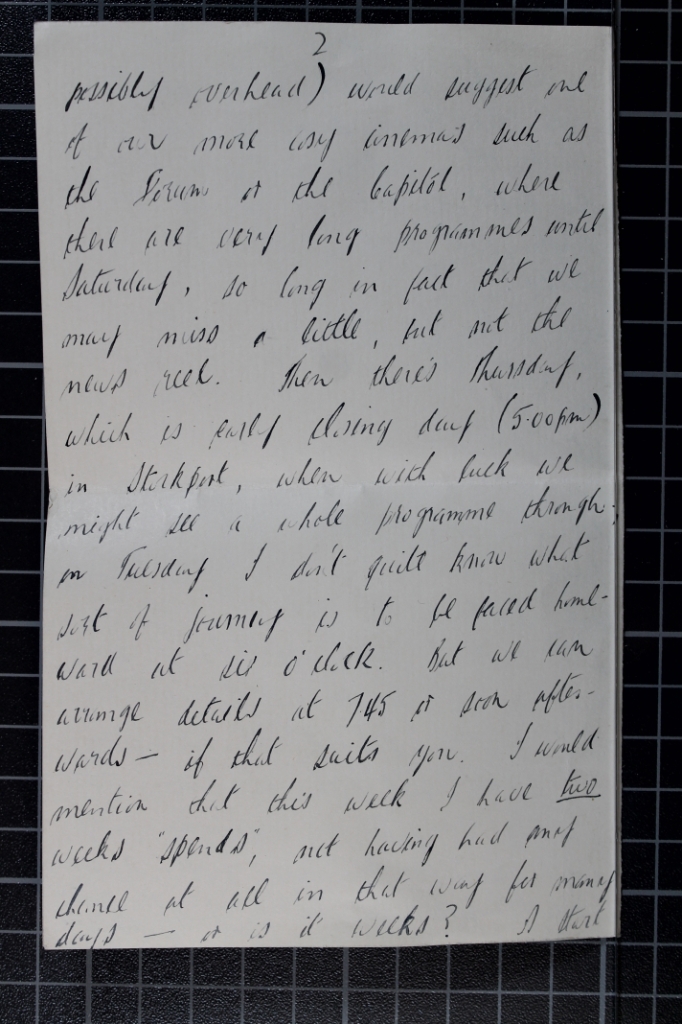 2
possibly overhead) would suggest one
of our more cosy cinema's such as
the Forum or the Capitól, where
there are very long programmes until
Saturday, so long in fact that we
may miss a little, but not the
news reel. Then there's Thursday,
which is early closing day (5.00pm)
in Stockport, when with luck we
might see a whole programme through;
on Tuesday I don't quite know what
sort of journey is to be faced home-
ward at six o'clock. But we can
arrange details at 745 or soon after-
wards — if that suits you. I would
mention that this week I have two
weeks "spends", not having had any
chance at all in that way for many
days — or is it weeks? A start